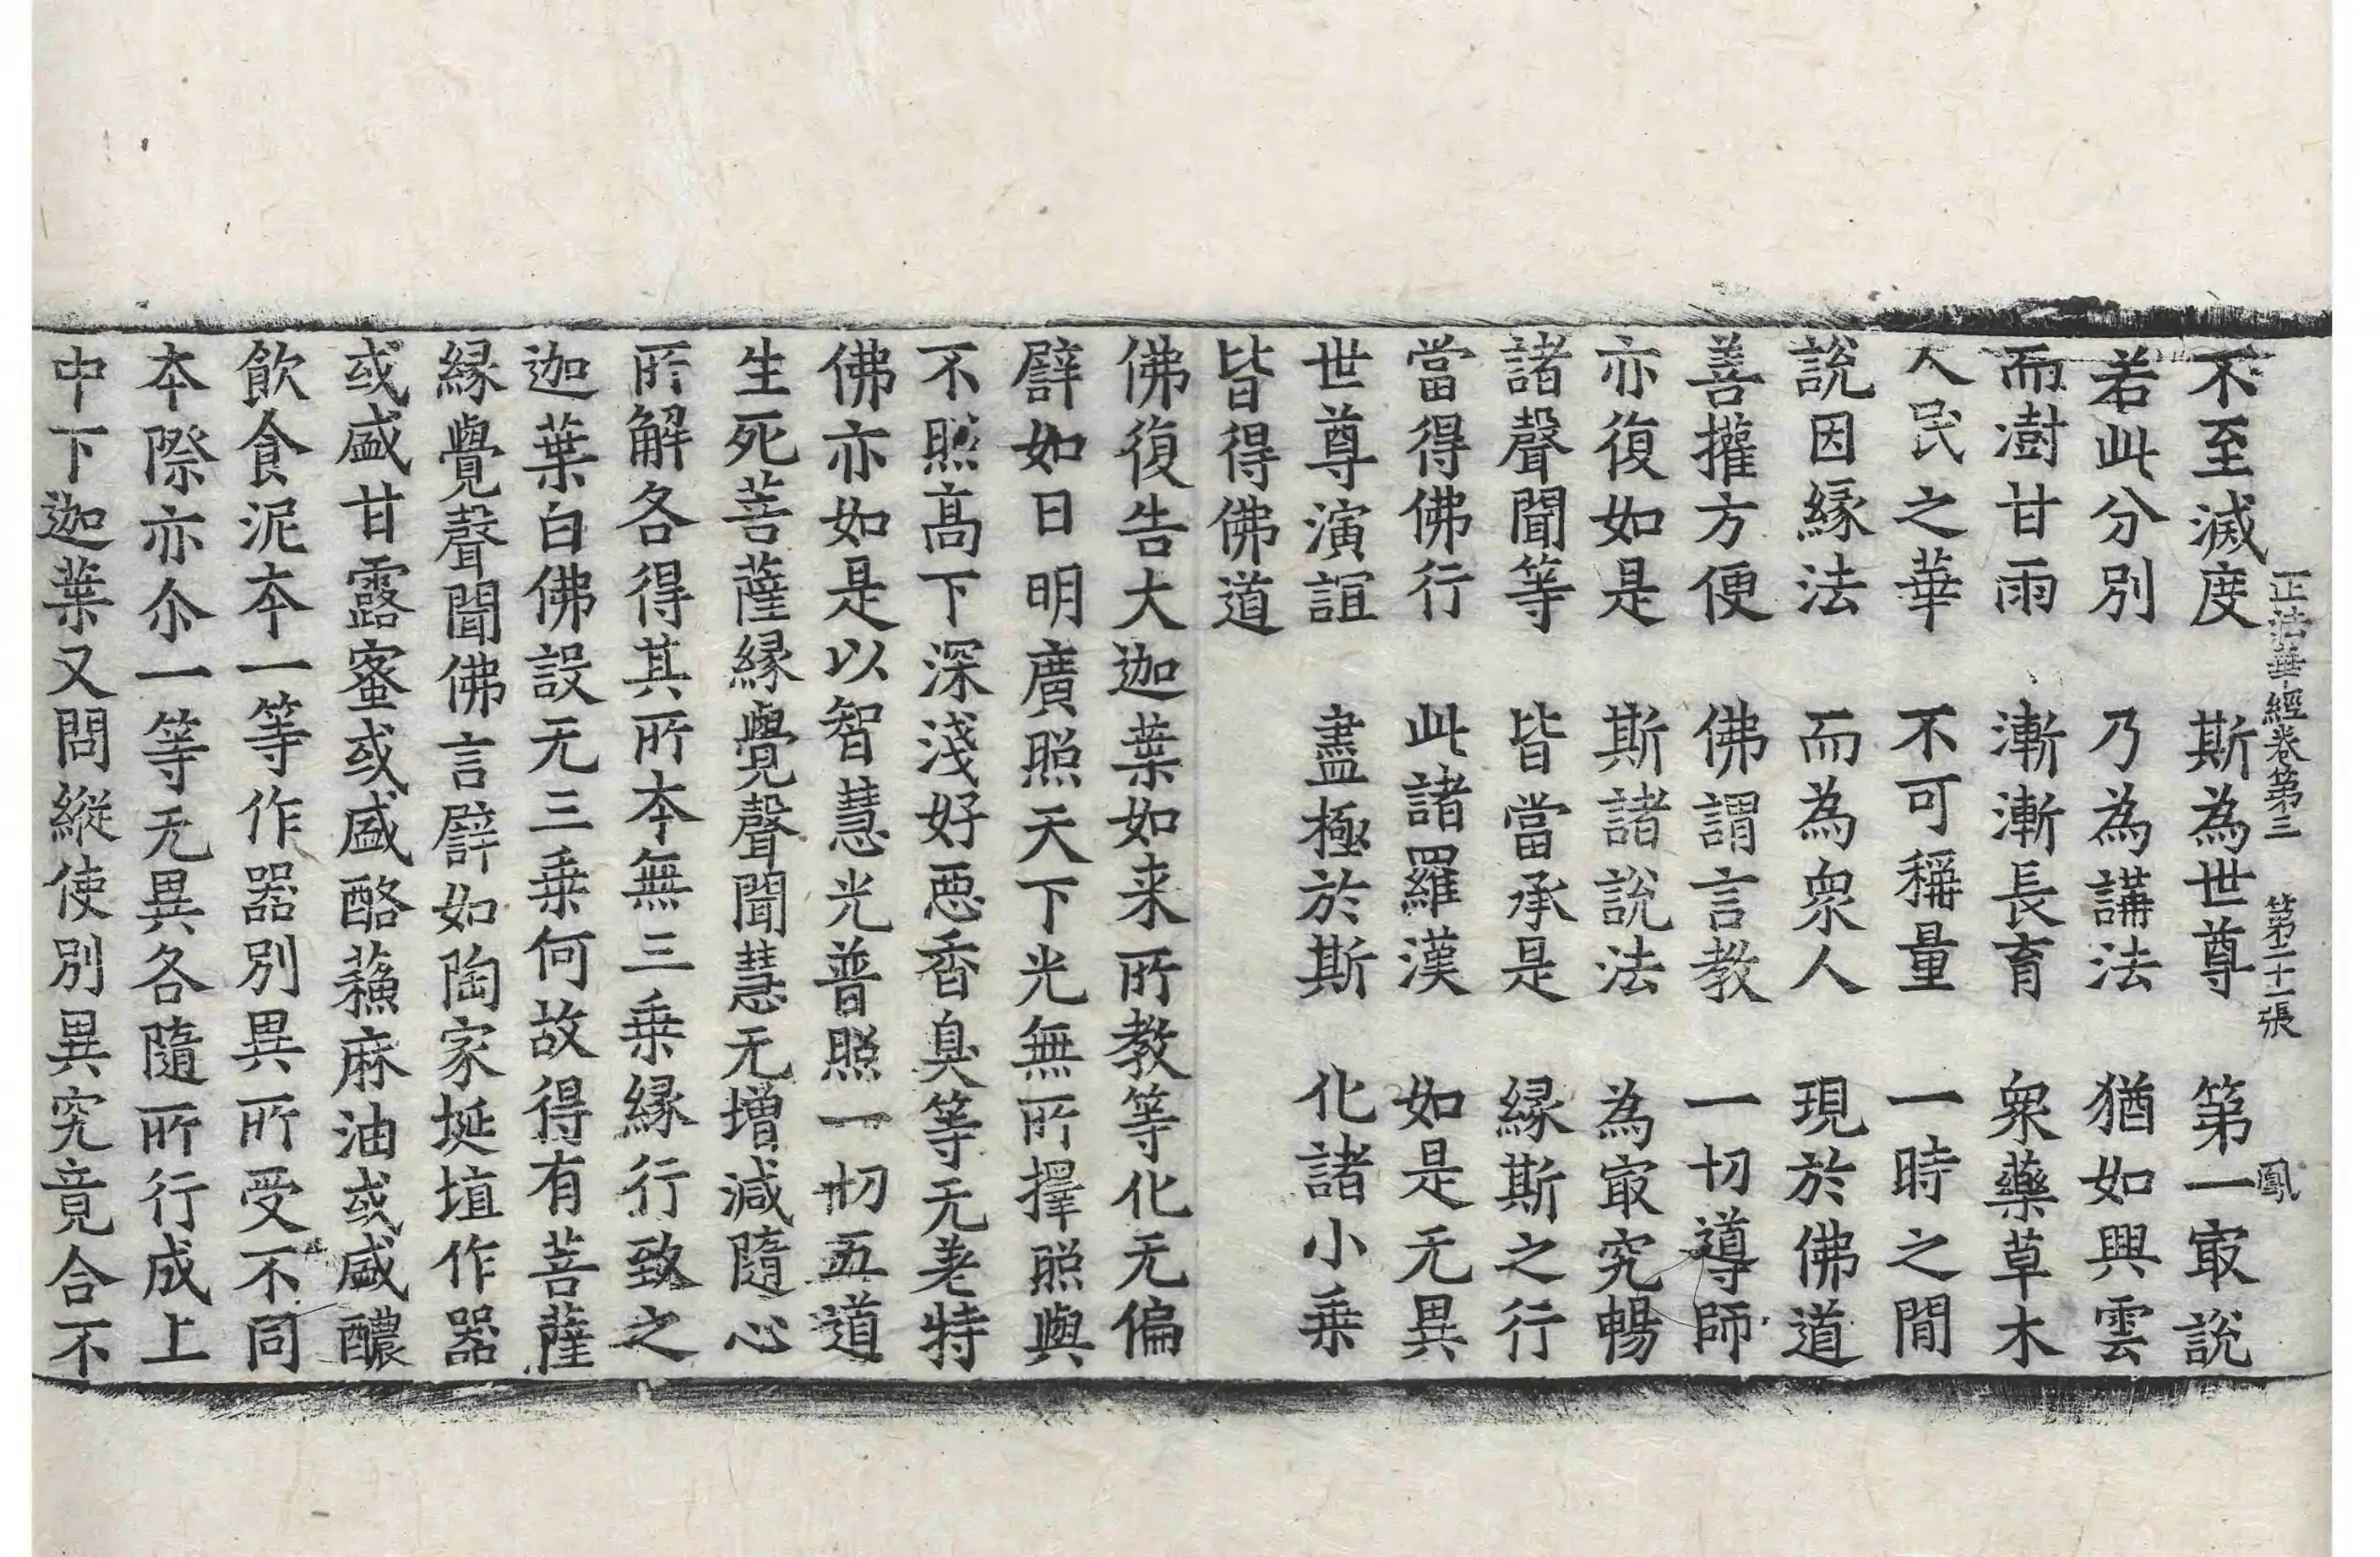 正法華經卷第三 第二十一張 鳳
不至滅度 斯為世尊 第一冣說
若此分別 乃為講法 猶如興雲
而澍甘雨 漸漸長育 衆藥草木
人民之華 不可稱量 一時之間
說因縁法 而為衆人 現於佛道
善攉方便 佛謂言教 一切導師
亦復如是 斯諸說法 為冣究暢
諸聲聞等 皆當承是 縁斯之行
當得佛行 此諸羅漢 如是无異
世尊演誼 盡極於斯 化諸小乗
皆得佛道
佛復告大迦葉如来所教等化无偏
譬如日明廣照天下光無所擇照與
不照高下深淺好惡香臭等无差特
佛亦如是以智慧光普照一切五道
生死菩薩縁覺聲聞慧无增減隨心
所解各得其所本無三乗縁行致之
迦葉白佛設无三乗何故得有菩薩
縁覺聲聞佛言譬如陶家埏埴作器
或盛甘露蜜或盛酪蘓麻油或盛醲
飲食泥本一等作器別異所受不同
本際亦尒一等无異各隨所行成上
中下迦葉又問縱使別異究竟合不